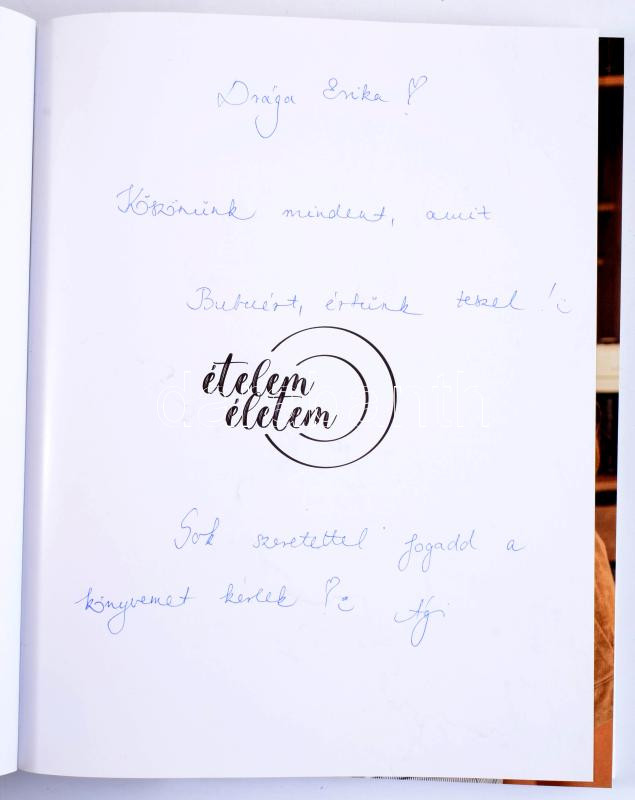 Drága Erika!
Köszönünk mindent, amit
Bubuért, értünk teszel!
ételem
életem
Sok szeretettel fogadd a
könyvemet kérlek! Ági